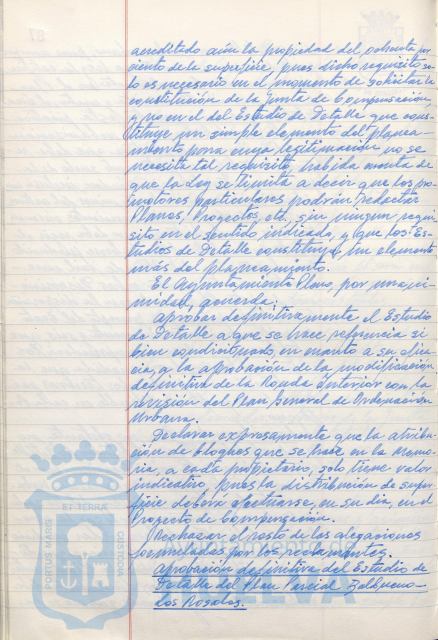 acreditado aún la propiedad del ochenta por
ciento de la superficie, pues dicho requisito so-
lo es necesario en el momento de solicitar la
constitución de la Junta de Compensación,
y no en el del Estudio de Detalle que cons-
tituye un simple elemento del planea-
miento para cuya legitimación no se
necesita tal requisito, habida cuenta de
que la Ley se limita a decir que los pro-
motores particulares podrán redactar
Planos, Proyectos, etc. sin ningún requi-
sito en el sentido indicado, y que los Es-
tudios de Detalle constituyen un elemento
más del planeamiento.
El Ayuntamiento Pleno, por unani-
midad, acuerda:
Aprobar definitivamente el Estudio
de Detalle a que se hace referencia si
bien condicionado, en cuanto a su efica-
cia, a la aprobación de la modificación
definitiva de la Ronda Interior con la
revisión del Plan General de Ordenación
Urbana.
Declarar expresamente que la atribu-
ción de bloques que se hace en la Memo-
ria, a cada propietario, solo tiene valor
indicativo, pues la distribución de super-
ficie deberá efectuarse, en su día, en el
Proyecto de Compensación.
Rechazar el resto de las alegaciones
formuladas por los reclamantes.
Aprobación definitiva del Estudio de
Detalle del Plan Parcial
los Rosales.
PORTUS MARIS
ET TERRA
CUSTODIA
HUELVA